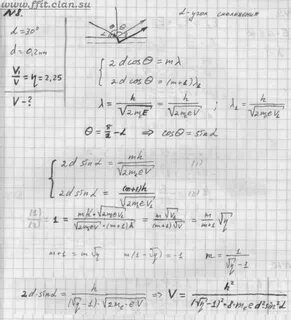 www.ffit.clan.su
№8. α-угол скольжения
α=30°
d=0,2нм
V₁/V = η = 2,25
V-?
θ
{ 2d cosθ = mλ
2d cosθ = (m+1)λ₁
λ = h/√(2mₑE) = h/√(2mₑeV) ; λ₁ = h/√(2mₑeV₁)
θ = π/2 - α ⇒ cosθ = sinα
{ 2d sinα = mh/√(2mₑeV) (1)
2d sinα = (m+1)h/√(2mₑeV₁) (2)
(1)/(2) = 1 = mh·√(2mₑeV₁)/(√(2mₑeV)·(m+1)h) = m√V₁/((m+1)√V) = m/(m+1) √η
m+1 = m√η m(1-√η) = -1 m = 1/(√η-1)
2d·sinα = h/((√η-1)·√(2mₑ·eV)) ⇒ V = h²/((√η-1)²·8·mₑed²sin²α)